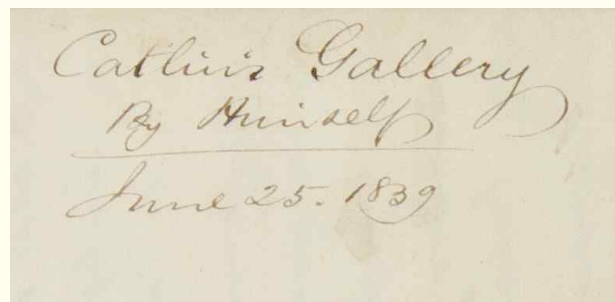 Catlin's Gallery
By Himself
June 25. 1839